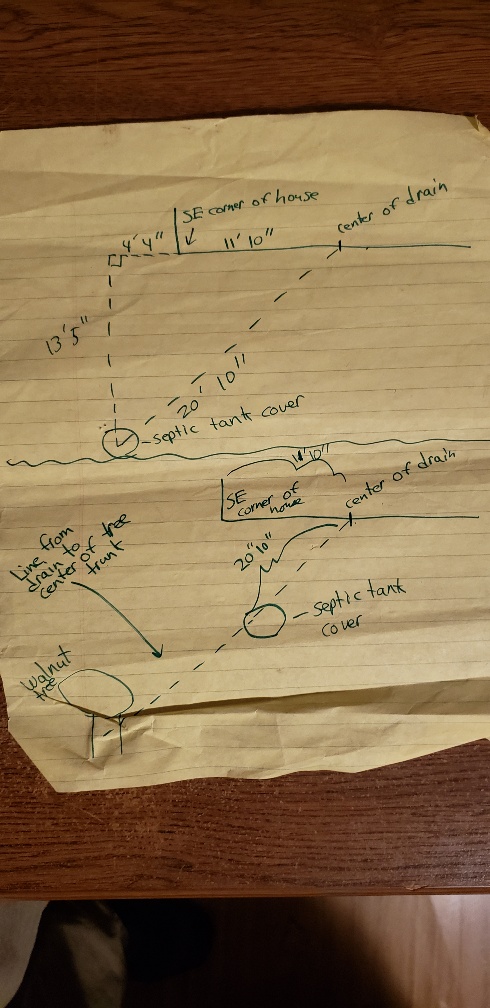 SE corner of house
center of drain
4' 4"
11' 10"
13' 5"
20' 10"
septic tank cover
11' 10"
center of drain
SE
corner of
house
Line from
drain to
center of tree
trunk
20" 10"
septic tank
cover
walnut
tree